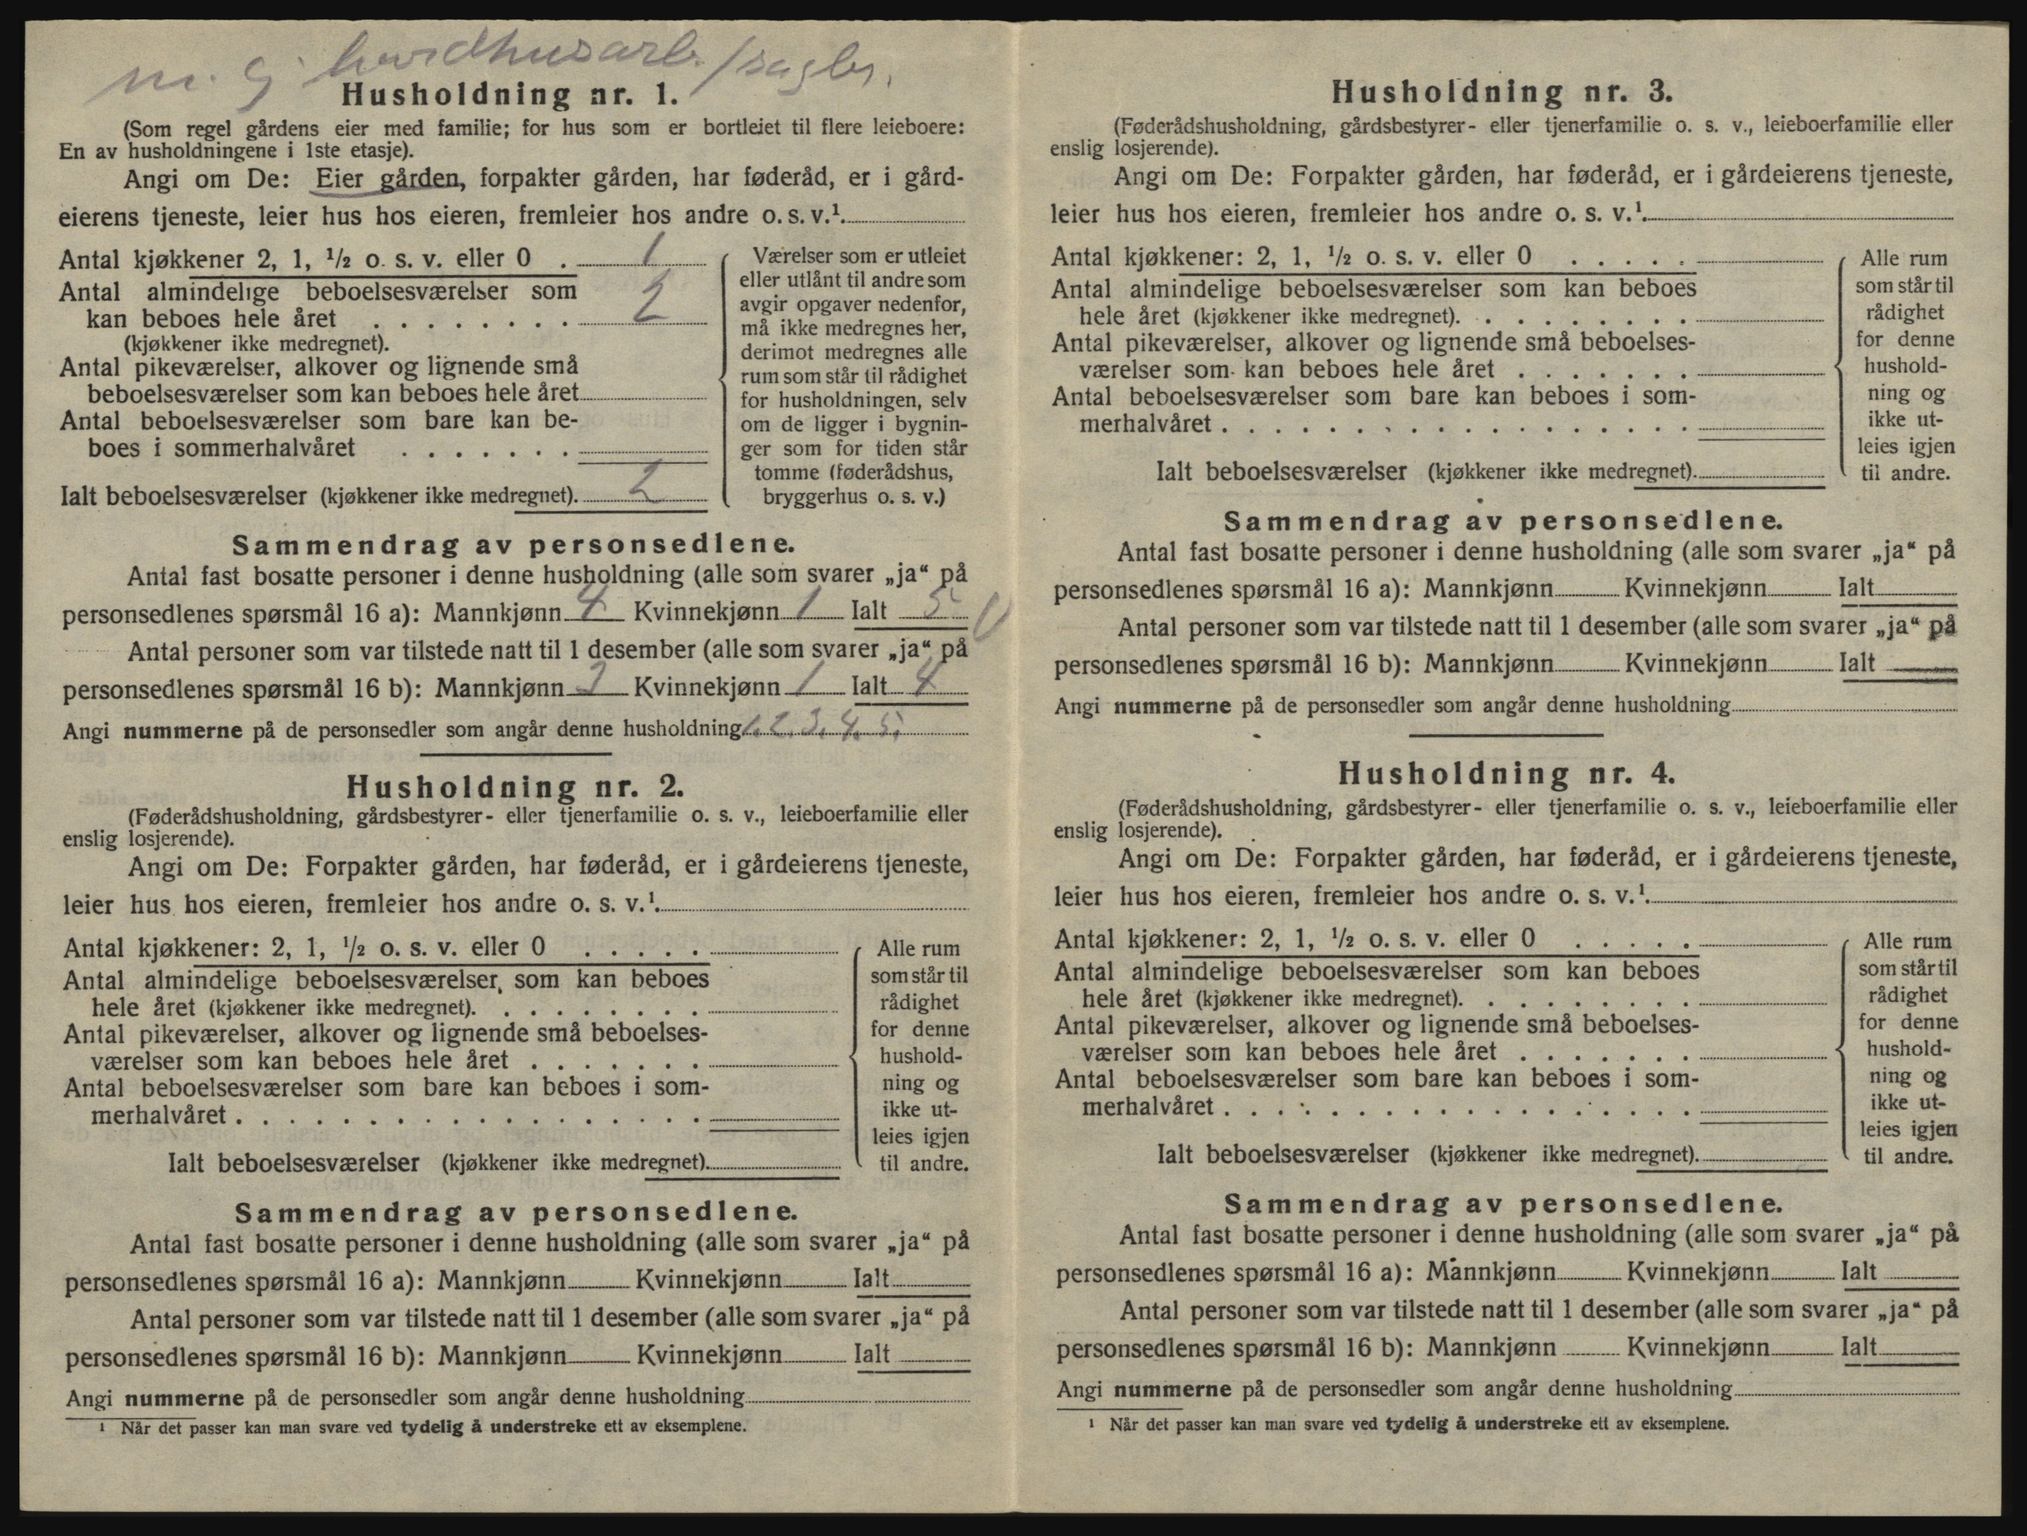 m. g. hvidhusarb. / sagbr.
Husholdning nr. 1.
(Som regel gårdens eier med familie; for hus som er bortleiet til flere leieboere:
En av husholdningene i 1ste etasje).
Angi om De: Eier gården, forpakter gården, har føderåd, er i gård-
eierens tjeneste, leier hus hos eieren, fremleier hos andre o. s. v.¹
Antal kjøkkener 2, 1, ½ o. s. v. eller 0 . 1
Antal almindelige beboelsesværelser som
kan beboes hele året . . . . . . . . 2
(kjøkkener ikke medregnet).
Antal pikeværelser, alkover og lignende små
beboelsesværelser som kan beboes hele året
Antal beboelsesværelser som bare kan be-
boes i sommerhalvåret . . . . . . .
Ialt beboelsesværelser (kjøkkener ikke medregnet). 2
Værelser som er utleiet
eller utlånt til andre som
avgir opgaver nedenfor,
må ikke medregnes her,
derimot medregnes alle
rum som står til rådighet
for husholdningen, selv
om de ligger i bygnin-
ger som for tiden står
tomme (føderådshus,
bryggerhus o. s. v.)
Sammendrag av personsedlene.
Antal fast bosatte personer i denne husholdning (alle som svarer „ja“ på
personsedlenes spørsmål 16 a): Mannkjønn 4 Kvinnekjønn 1 Ialt 5
Antal personer som var tilstede natt til 1 desember (alle som svarer „ja“ på
personsedlenes spørsmål 16 b): Mannkjønn 3 Kvinnekjønn 1 Ialt 4
Angi nummerne på de personsedler som angår denne husholdning 1. 2. 3. 4. 5.
Husholdning nr. 2.
(Føderådshusholdning, gårdsbestyrer- eller tjenerfamilie o. s. v., leieboerfamilie eller
enslig losjerende).
Angi om De: Forpakter gården, har føderåd, er i gårdeierens tjeneste,
leier hus hos eieren, fremleier hos andre o. s. v.¹
Antal kjøkkener: 2, 1, ½ o. s. v. eller 0 . . . . .
Antal almindelige beboelsesværelser som kan beboes
hele året (kjøkkener ikke medregnet). . . . . . . . .
Antal pikeværelser, alkover og lignende små beboelses-
værelser som kan beboes hele året . . . . . . .
Antal beboelsesværelser som bare kan beboes i som-
merhalvåret . . . . . . . . . . . . . . . . . .
Ialt beboelsesværelser (kjøkkener ikke medregnet).
Alle rum
som står til
rådighet
for denne
hushold-
ning og
ikke ut-
leies igjen
til andre.
Sammendrag av personsedlene.
Antal fast bosatte personer i denne husholdning (alle som svarer „ja“ på
personsedlenes spørsmål 16 a): Mannkjønn Kvinnekjønn Ialt
Antal personer som var tilstede natt til 1 desember (alle som svarer „ja“ på
personsedlenes spørsmål 16 b): Mannkjønn Kvinnekjønn Ialt
Angi nummerne på de personsedler som angår denne husholdning
¹ Når det passer kan man svare ved tydelig å understreke ett av eksemplene.
Husholdning nr. 3.
(Føderådshusholdning, gårdsbestyrer- eller tjenerfamilie o. s. v., leieboerfamilie eller
enslig losjerende).
Angi om De: Forpakter gården, har føderåd, er i gårdeierens tjeneste,
leier hus hos eieren, fremleier hos andre o. s. v.¹
Antal kjøkkener: 2, 1, ½ o. s. v. eller 0 . . . . .
Antal almindelige beboelsesværelser som kan beboes
hele året (kjøkkener ikke medregnet). . . . . . . . .
Antal pikeværelser, alkover og lignende små beboelses-
værelser som kan beboes hele året . . . . . . .
Antal beboelsesværelser som bare kan beboes i som-
merhalvåret . . . . . . . . . . . . . . . . . .
Ialt beboelsesværelser (kjøkkener ikke medregnet).
Alle rum
som står til
rådighet
for denne
hushold-
ning og
ikke ut-
leies igjen
til andre.
Sammendrag av personsedlene.
Antal fast bosatte personer i denne husholdning (alle som svarer „ja“ på
personsedlenes spørsmål 16 a): Mannkjønn Kvinnekjønn Ialt
Antal personer som var tilstede natt til 1 desember (alle som svarer „ja“ på
personsedlenes spørsmål 16 b): Mannkjønn Kvinnekjønn Ialt
Angi nummerne på de personsedler som angår denne husholdning
Husholdning nr. 4.
(Føderådshusholdning, gårdsbestyrer- eller tjenerfamilie o. s. v., leieboerfamilie eller
enslig losjerende).
Angi om De: Forpakter gården, har føderåd, er i gårdeierens tjeneste,
leier hus hos eieren, fremleier hos andre o. s. v.¹
Antal kjøkkener: 2, 1, ½ o. s. v. eller 0 . . . . .
Antal almindelige beboelsesværelser som kan beboes
hele året (kjøkkener ikke medregnet). . . . . . . . .
Antal pikeværelser, alkover og lignende små beboelses-
værelser som kan beboes hele året . . . . . . .
Antal beboelsesværelser som bare kan beboes i som-
merhalvåret . . . . . . . . . . . . . . . . . .
Ialt beboelsesværelser (kjøkkener ikke medregnet).
Alle rum
som står til
rådighet
for denne
hushold-
ning og
ikke ut-
leies igjen
til andre.
Sammendrag av personsedlene.
Antal fast bosatte personer i denne husholdning (alle som svarer „ja“ på
personsedlenes spørsmål 16 a): Mannkjønn Kvinnekjønn Ialt
Antal personer som var tilstede natt til 1 desember (alle som svarer „ja“ på
personsedlenes spørsmål 16 b): Mannkjønn Kvinnekjønn Ialt
Angi nummerne på de personsedler som angår denne husholdning
¹ Når det passer kan man svare ved tydelig å understreke ett av eksemplene.